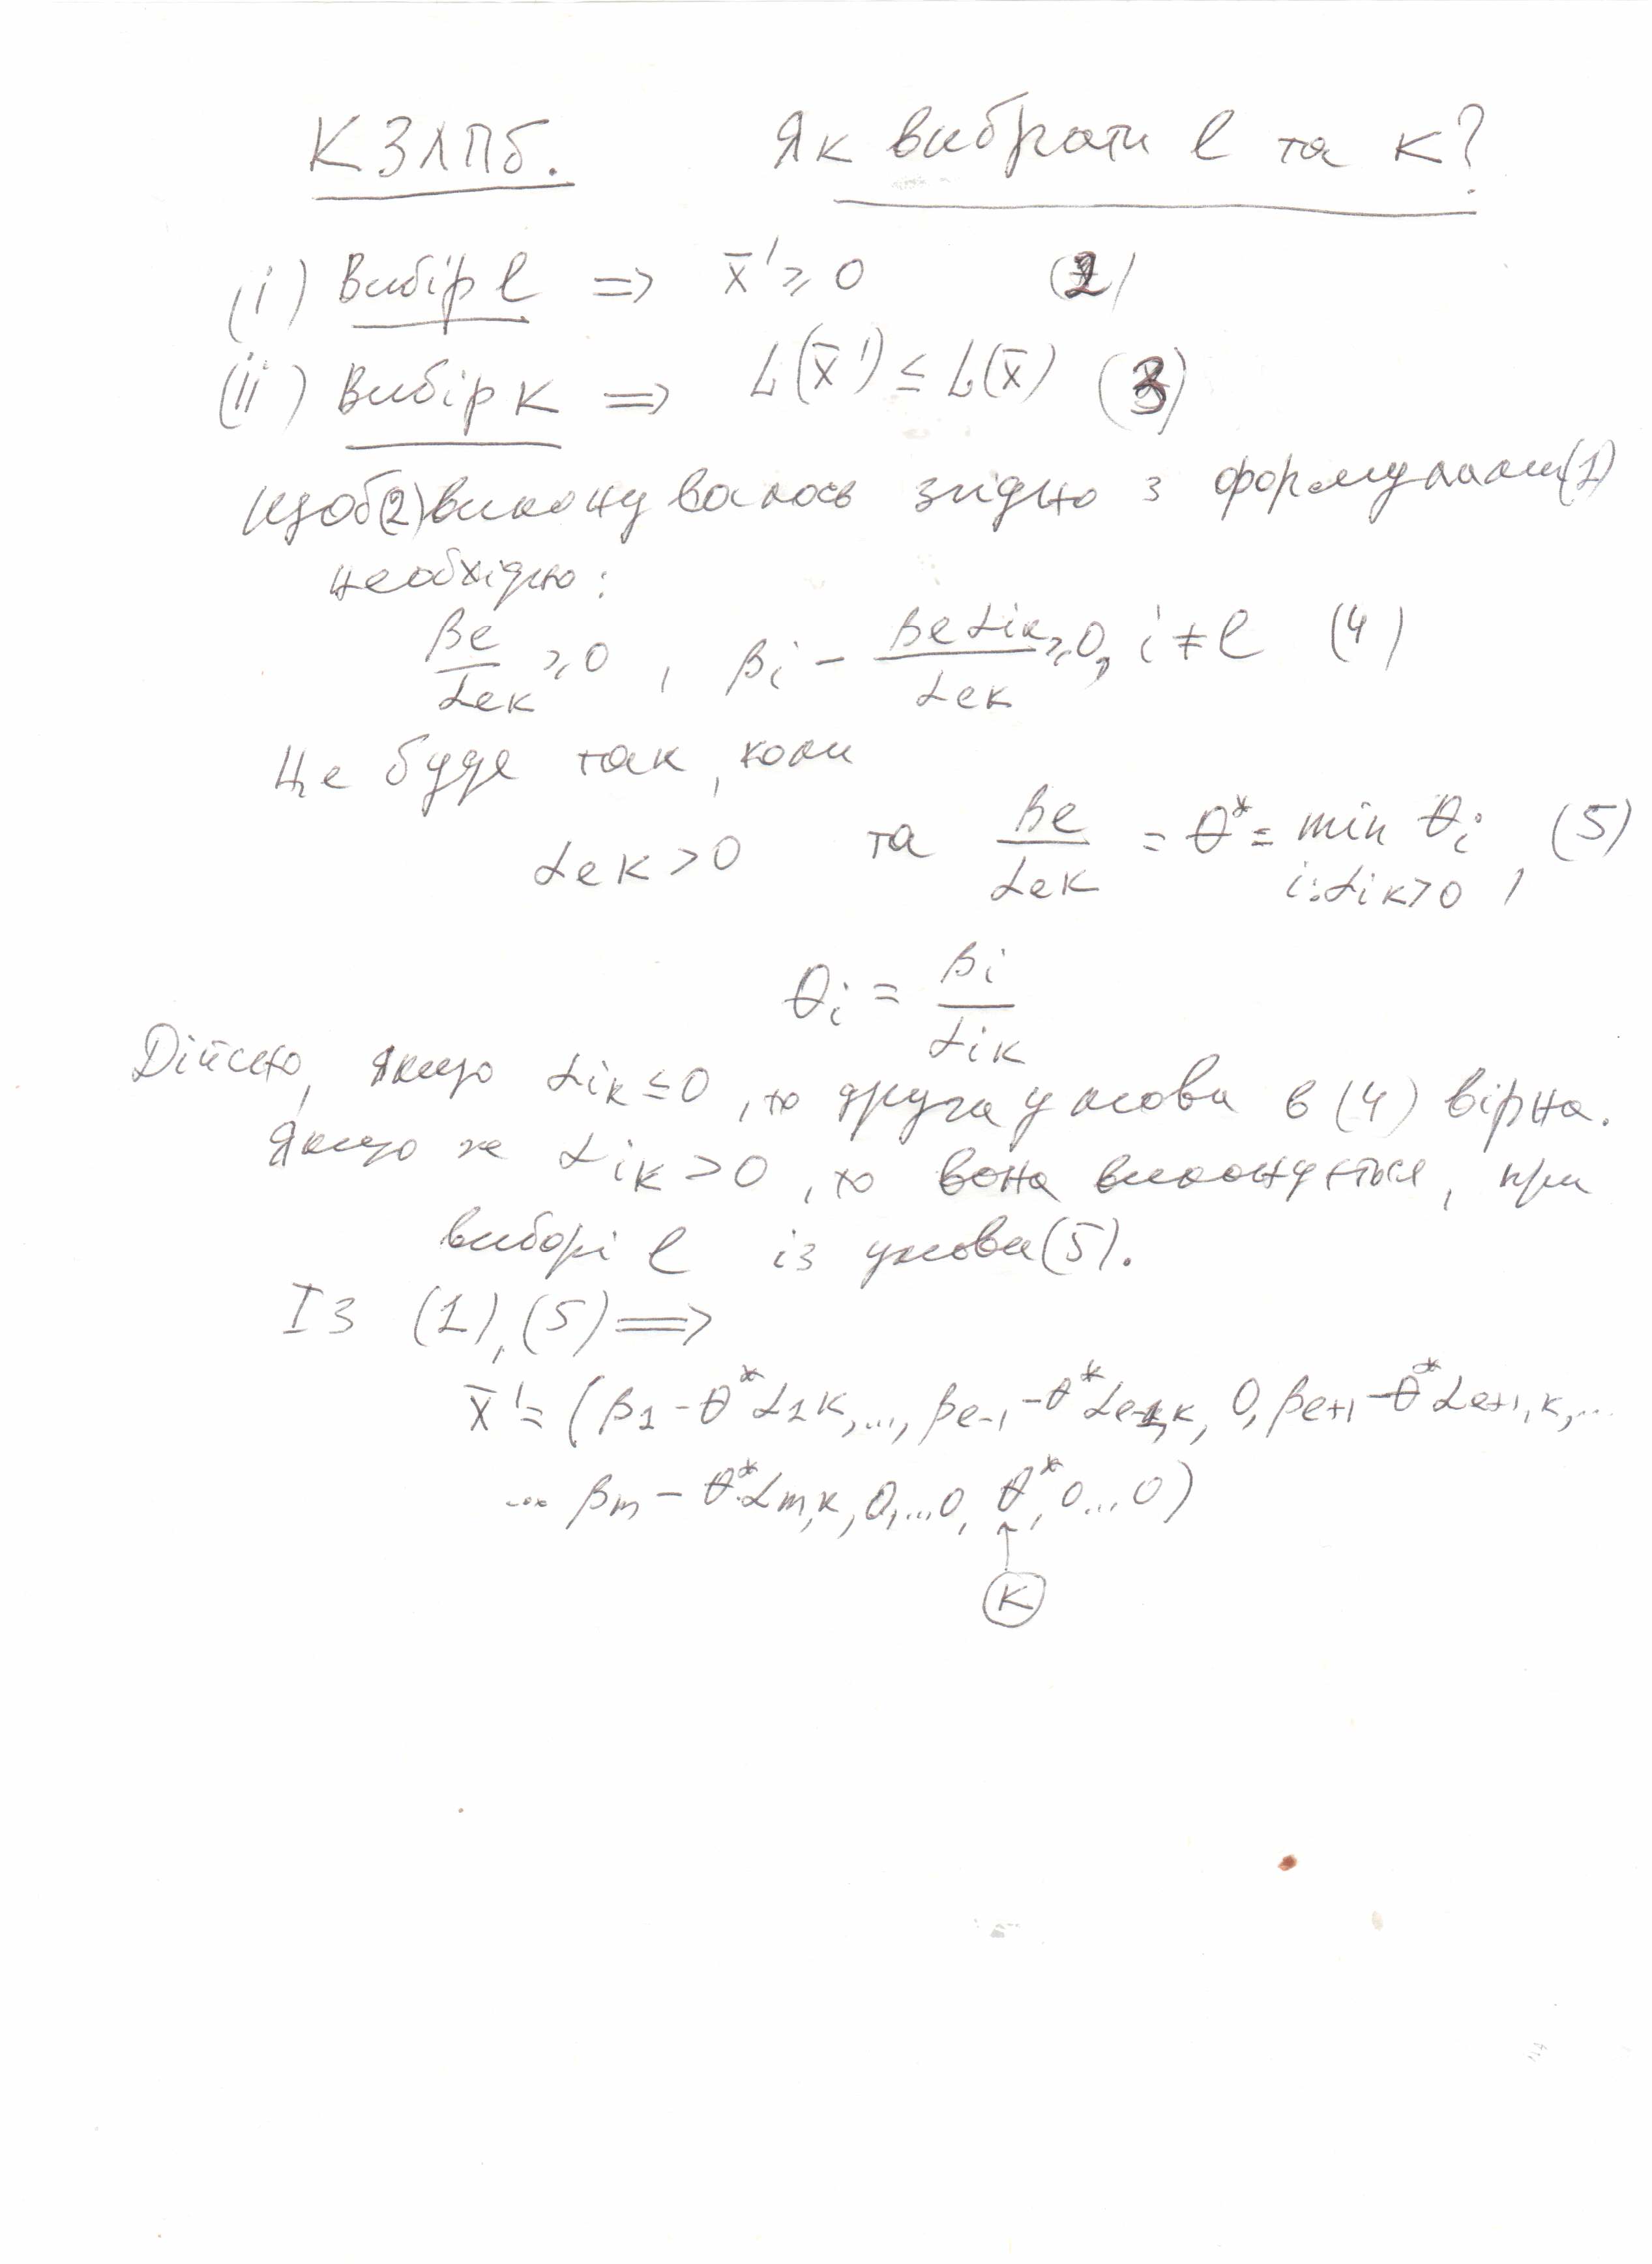 КЗЛПб. Як вибрати l та к?
(i) Вибір l ⇒ x̄' ≥ 0 (2)
(ii) Вибір к ⇒ L(x̄') ≤ L(x̄) (3)
Щоб (2) виконувалось згідно з формулами (1)
необхідно:
βl/αlк ≥ 0, βi − βl αiк/αlк ≥ 0, i ≠ l (4)
Це буде так, коли
αlк > 0 та βl/αlк = θ* = min θi, (5)
i: αiк > 0
θi = βi/αiк
Дійсно, якщо αiк ≤ 0, то друга умова в (4) вірна.
Якщо ж αiк > 0, то вона виконується, при
виборі l із умови (5).
Із (1), (5) ⟹
x̄' = (β1 − θ*α1к, ..., βl-1 − θ*αl-1,к, 0, βl+1 − θ*αl+1,к, ...
... βm − θ*αm,к, 0, ... 0, θ*, 0 ... 0)
↑
к